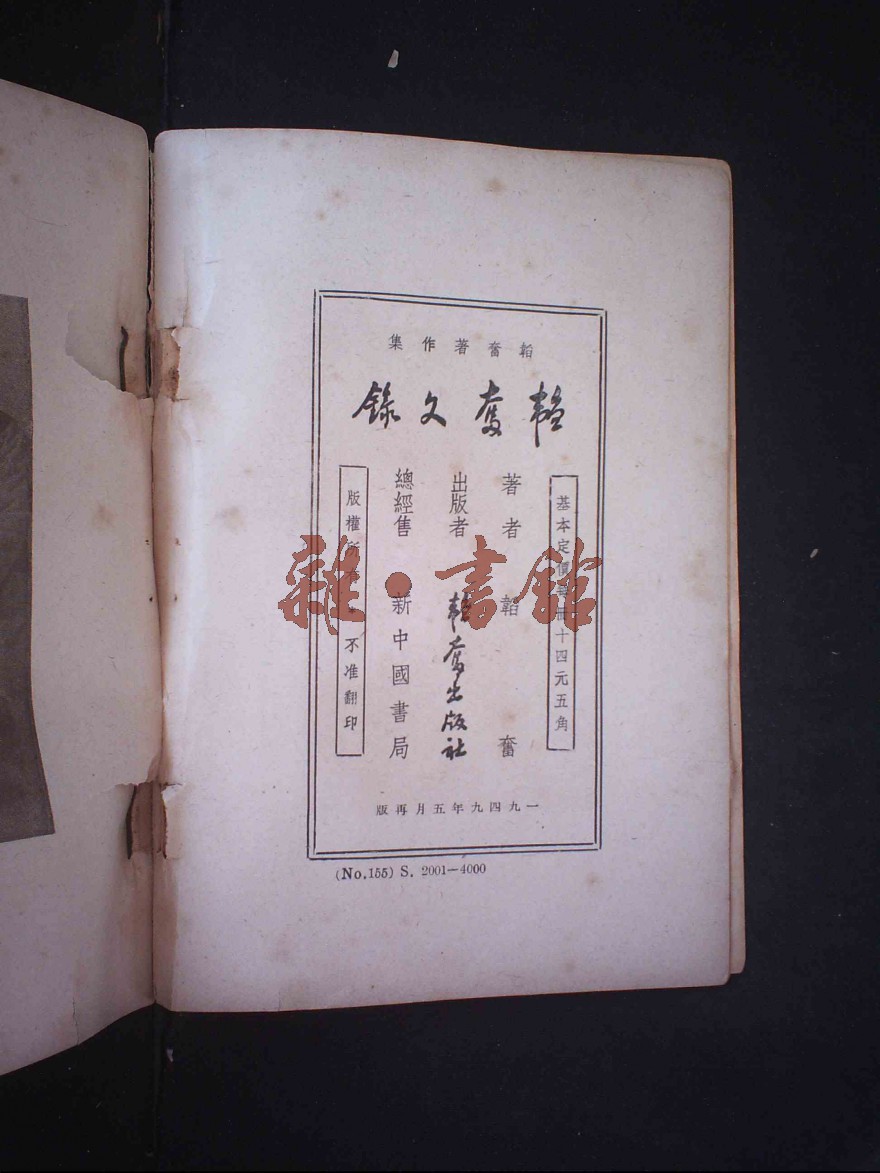 韜奮著作集
韜奮文錄
基本定價每冊十四元五角
著者 韜奮
出版者 韜奮出版社
總經售 新中國書局
版權所 不准翻印
一九四九年五月再版
(No.155) S. 2001—4000
雜·書館